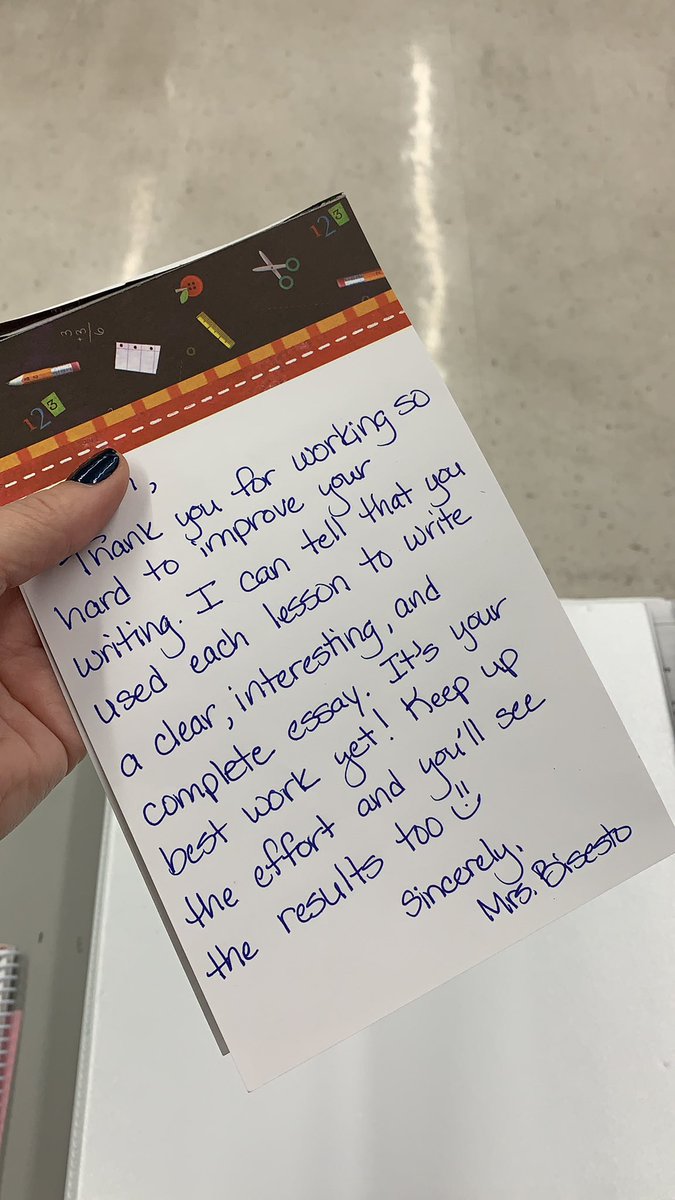 1 2 3
3
+3
6
1 2 3
Thank you for working so
hard to improve your
writing. I can tell that you
used each lesson to write
a clear, interesting, and
complete essay. It's your
best work yet! Keep up
the effort and you'll see
the results too
Sincerely,
Mrs. Bisesto